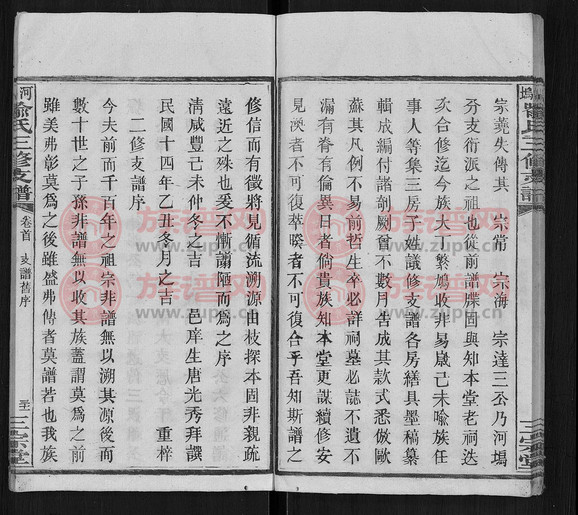 宗蕘失傳其　宗常　宗海　宗達三丞乃河塲
分支衍派之祖也從前譜牒固與知本堂老祠迭
次合修迄今族大丁繁鳩收非易歲己未喻族任
事人等集三房子姓議修支譜各房繕具墨稿纂
輯成編付諸剞劂曾不數月告成其款式悉倣歐
蘇其凡例不易前哲生卒必詳祠墓必誌不遺不
漏有脊有倫異日者倘貴族知本堂更謀續修安
見渙者不可復萃睽者不可復合乎吾知斯譜之
喻氏三修支譜
三宗堂
修信而有徵將見循流溯源由枝探本固非親疏
遠近之殊也爰不慚譾陋而爲之序
清咸豐己未仲冬之吉　邑庠生唐光秀拜譔
民國十四年乙丑冬月之吉　重梓
二修支譜序
今夫前而千百年之祖宗非譜無以溯其源後而
數十世之子孫非譜無以收其族蓋謂莫爲之前
雖美弗彰莫爲之後雖盛弗傳者莫譜若也我族
河
喻氏三修支譜
卷首　支譜舊序
三宗堂
族谱网
www.zupu.cn